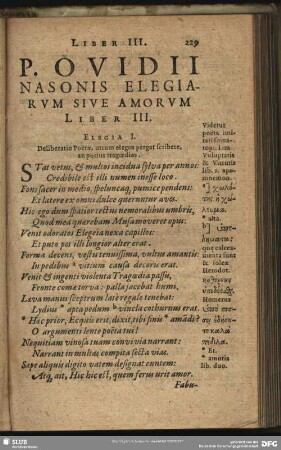 LIBER III. 229
P. OVIDII
NASONIS ELEGIA-
RVM SIVE AMORVM
LIBER III.
ELEGIA I.
Deliberatio Poetæ, utrum elegos pergat scribere,
an potius tragœdias.
STat vetus, & multos incædua sylva per annos:
Credibile est illi numen inesse loco.
Fons sacer in medio, speluncaq; pumice pendens:
Et latere ex omni dulce queruntur aves.
Hic ego dum spatior tectus nemoralibus umbris,
Quod mea quærebam Musa moveret opus:
Venit odoratos Elegeia nexa capillos:
Et puto pes illi longior alter erat.
Forma decens, vestis tenuissima, vultus amantis:
In pedibus vitium causa decoris erat.
Venit & ingenti violenta Tragœdia passu,
Fronte comæ torva: palla jacebat humi,
Læva manus sceptrum late regale tenebat:
Lydius apta pedum vincla cothurnus erat.
Hæc prior, Ecquis erit, dixit, tibi finis amādi?
O argumenti lente poëta tui!
Nequitiam vinosa tuam convivia narrant:
Narrant in multas compita secta vias.
Sæpe aliquis digito vatem designat euntem:
Atq; ait, Hic hic est, quem ferus urit amor.
Fabu-
Videtur
poëta
Voluptatis
& Virtutis
lib. 2.
que sunt
Herodot.
Homerus
Et.
amoris
lib. duo.
SLUB
DFG